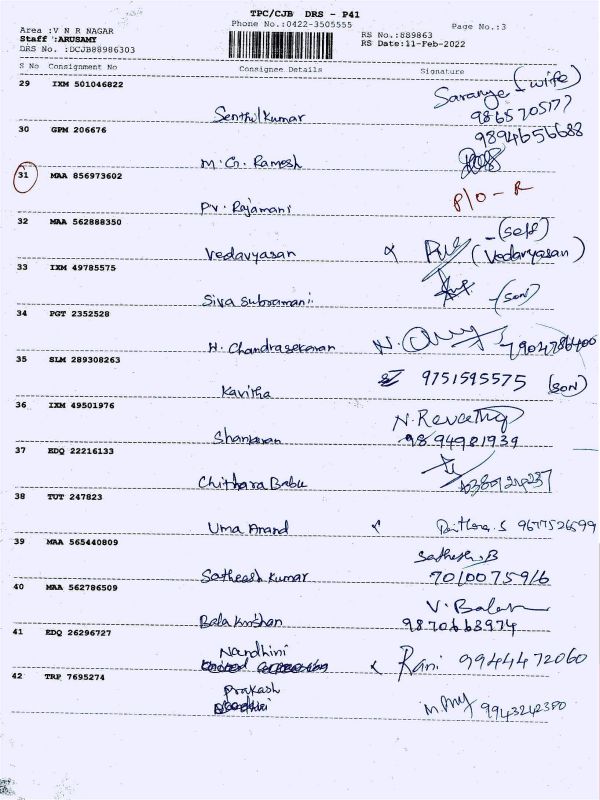 TPC/CJB DRS - P41
Area :V N R NAGAR
Phone No.:0422-3505555
Page No.:3
Staff :ARUSAMY
RS No.:889863
DRS No. :DCJB88986303
RS Date:11-Feb-2022
S No Consignment No Consignee Details Signature
29 IXM 501046822
Senthilkumar Saranya - (wife)
9865705177
30 GPM 206676
9894656688
M. G. Ramesh
31 MAA 856973602
PV. Rajamani P/O - R
32 MAA 562888350
Vedavyasan - (self)
(Vedavyasan)
33 IXM 49785575
Siva Subramani (son)
34 PGT 2352528
H. Chandrasekaran 7904786400
35 SLM 289308263
Kavitha 9751595575 (SON)
36 IXM 49501976
Shankaran N. Revathy
9894981939
37 EDQ 22216133
Chithara Babu
38 TUT 247823
Uma Anand S 9677526599
39 MAA 565440809
Satheesh Kumar Sathesh.B
7010075916
40 MAA 562786509
Bala Krishan V. Balan
9870663974
41 EDQ 26296727
Nandhini
Rani 9944472060
42 TRP 7695274
Prakash
9943242350